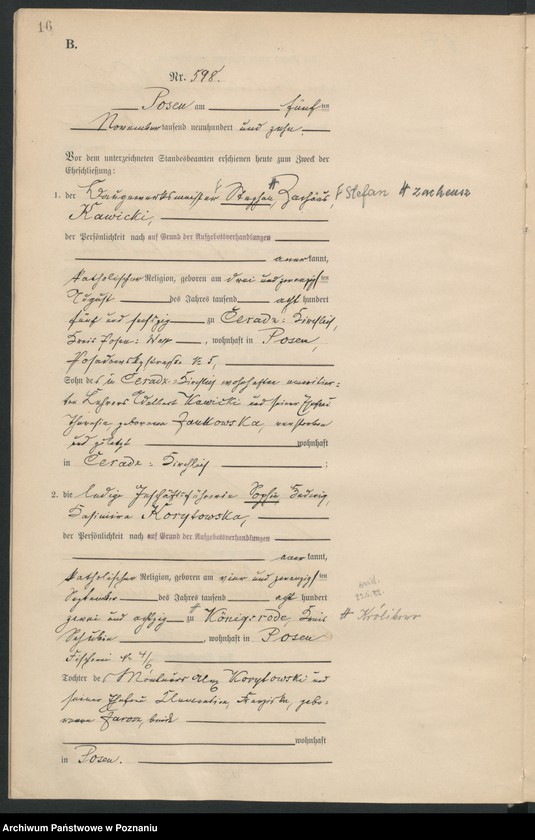 16
B.
Nr. 598.
Posen am fünf ten
November tausend neunhundert und zehn
Vor dem unterzeichneten Standesbeamten erschienen heute zum Zweck der
Eheschließung:
1. der Baugewerksmeister Stephan, Zachäus, Stefan # Zacheusz
Kawicki,
der Persönlichkeit nach auf Grund der Aufgebotsverhandlungen
anerkannt,
katholischer Religion, geboren am drei und zwanzigsten
August des Jahres tausend acht hundert
fünf und sechszig zu Ceradz-Kirchlich,
Kreis Posen-West, wohnhaft in Posen,
5,
Sohn des in Ceradz-Kirchlich wohnhaften emeritier-
ten Lehrers Adalbert Kawicki und seiner Ehefrau
Theresia, geborenen Jankowska, verstorben
und zuletzt wohnhaft
in Ceradz-Kirchlich;
2. die ledige Geschäftsführerin Sophie Hedwig,
Kasimira Korytowska,
der Persönlichkeit nach auf Grund der Aufgebotsverhandlungen
anerkannt,
katholischer Religion, geboren am vier und zwanzigsten
September des Jahres tausend acht hundert
zwei und achtzig zu Königsrode, Kreis # Królikowo
Schubin, wohnhaft in Posen
Fischerei 4/6
Tochter des Alex Korytowski und
seiner Ehefrau Franziska, gebo-
renen beide
wohnhaft
in Posen.
Archiwum Państwowe w Poznaniu